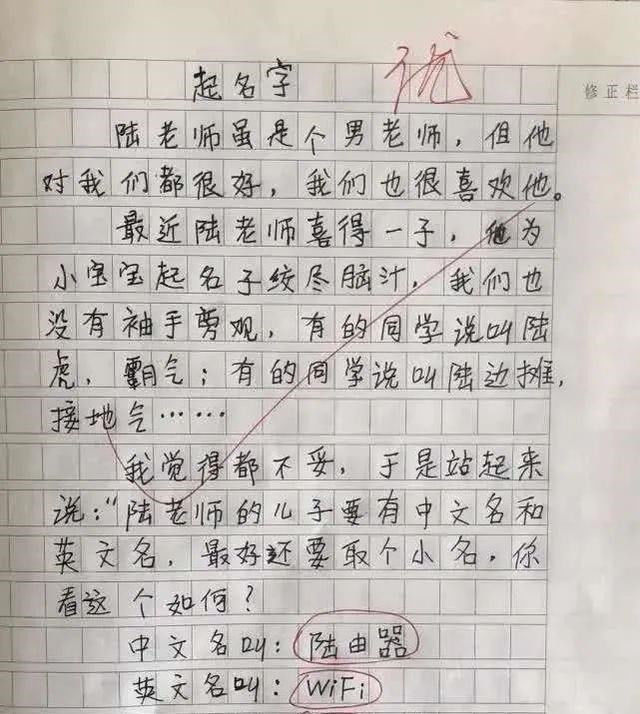 优
修正栏
起名字
陆老师虽是个男老师，但他
对我们都很好，我们也很喜欢他。
最近陆老师喜得一子，他为
小宝宝起名子绞尽脑汁，我们也
没有袖手剪观，有的同学说叫陆
虎，霸气；有的同学说叫陆边摊，
接地气……
我觉得都不妥，于是站起来
说：“陆老师的儿子要有中文名和
英文名，最好还要取个小名，你
看这个如何？
中文名叫：陆由器
英文名叫：WiFi